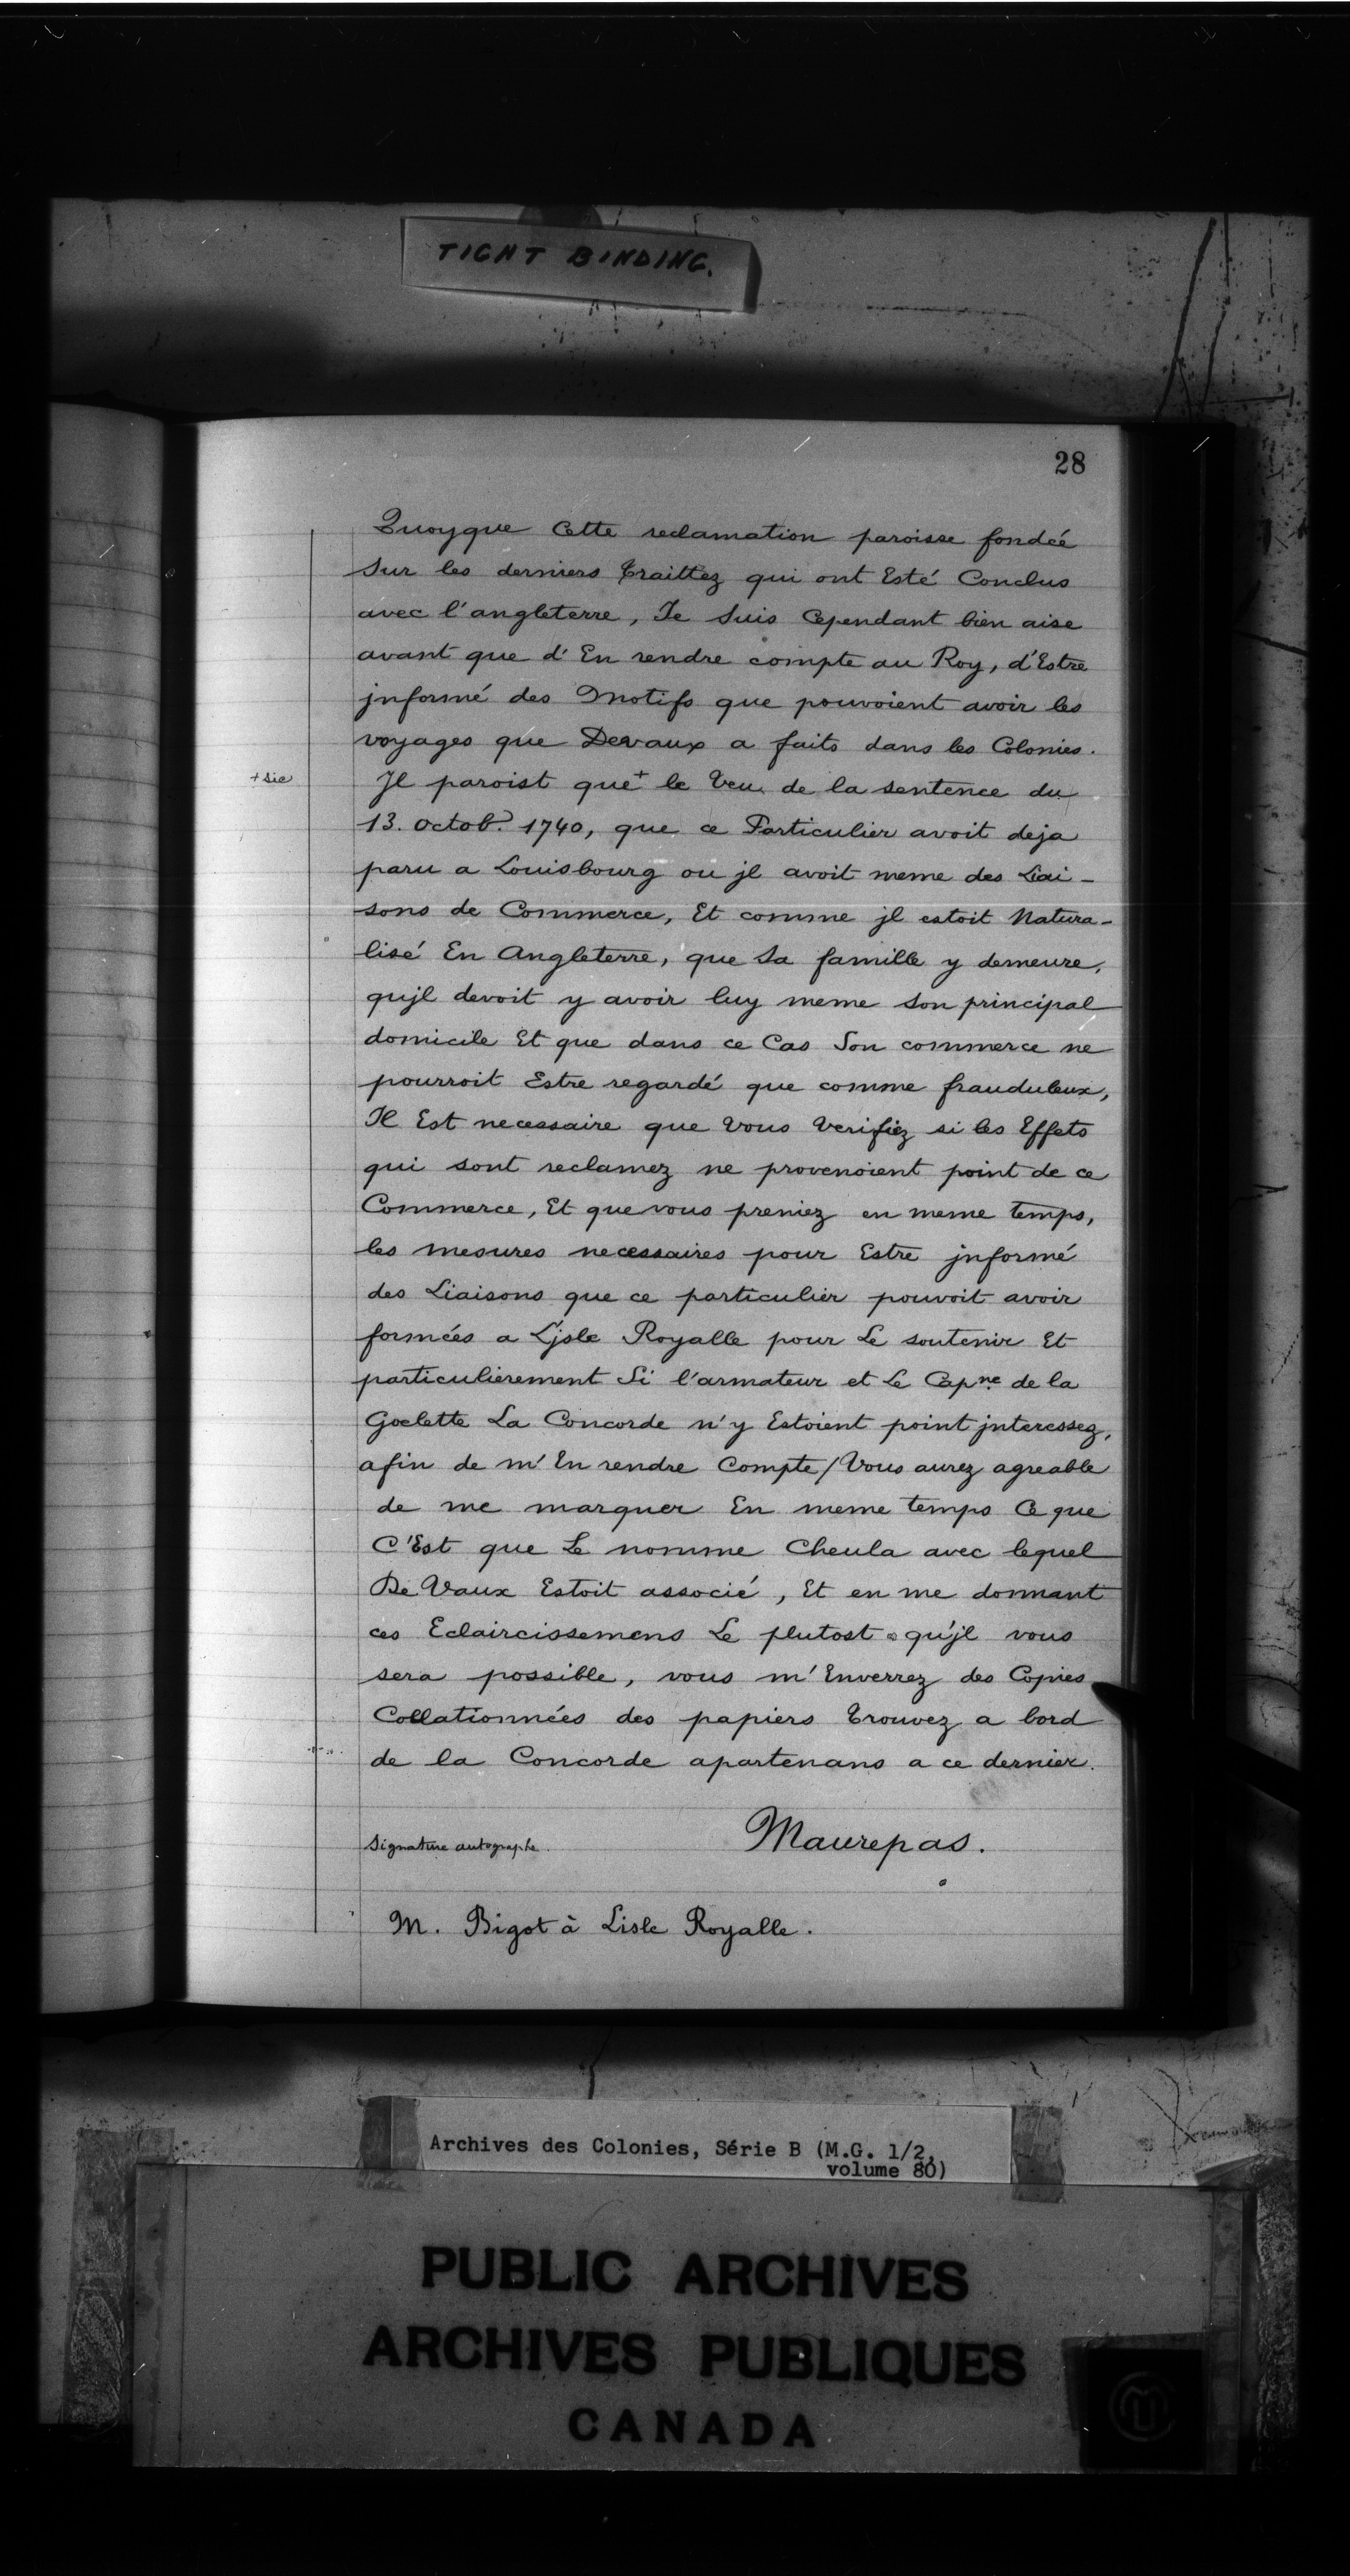 TIGHT BINDING.
28
Quoyque Cette reclamation paroisse fondée
Sur les derniers Traittez qui ont Esté Conclus
avec l'angleterre, Je Suis Cependant bien aise
avant que d'En rendre compte au Roy, d'Estre
jnformé des Motifs que pouvoient avoir les
voyages que Devaux a faits dans les Colonies.
+ sic
Jl paroist que + le Veu de la sentence du
13. octob. 1740, que ce Particulier avoit deja
paru a Louisbourg ou jl avoit meme des Liai-
sons de Commerce, Et comme jl estoit Natura-
lisé En Angleterre, que Sa famille y demeure,
qujl devoit y avoir luy meme son principal
domicile Et que dans ce Cas Son commerce ne
pourroit Estre regardé que comme frauduleux,
Il Est necessaire que Vous Verifiez si les Effets
qui sont reclamez ne provenoient point de ce
Commerce, Et que vous preniez en meme temps,
les mesures necessaires pour Estre jnformé
des Liaisons que ce particulier pouvoit avoir
formées a L'jsle Royalle pour Le soutenir Et
particulierement Si l'armateur et Le Capne de la
Goelette La Concorde n'y Estoient point jnteressez,
afin de m'En rendre Compte/Vous aurez agreable
de me marquer En meme temps Ce que
C'Est que Le nomme Cheula avec lequel
De Vaux Estoit associé, Et en me donnant
ces Eclaircissemens Le plutost qu'jl vous
sera possible, vous m'Enverrez des Copies
Collationnées des papiers Trouvez a bord
de la Concorde apartenans a ce dernier.
Signature autographe. Maurepas.
M. Bigot à Lisle Royalle.
Archives des Colonies, Série B (M.G. 1/2,
volume 80)
PUBLIC ARCHIVES
ARCHIVES PUBLIQUES
CANADA